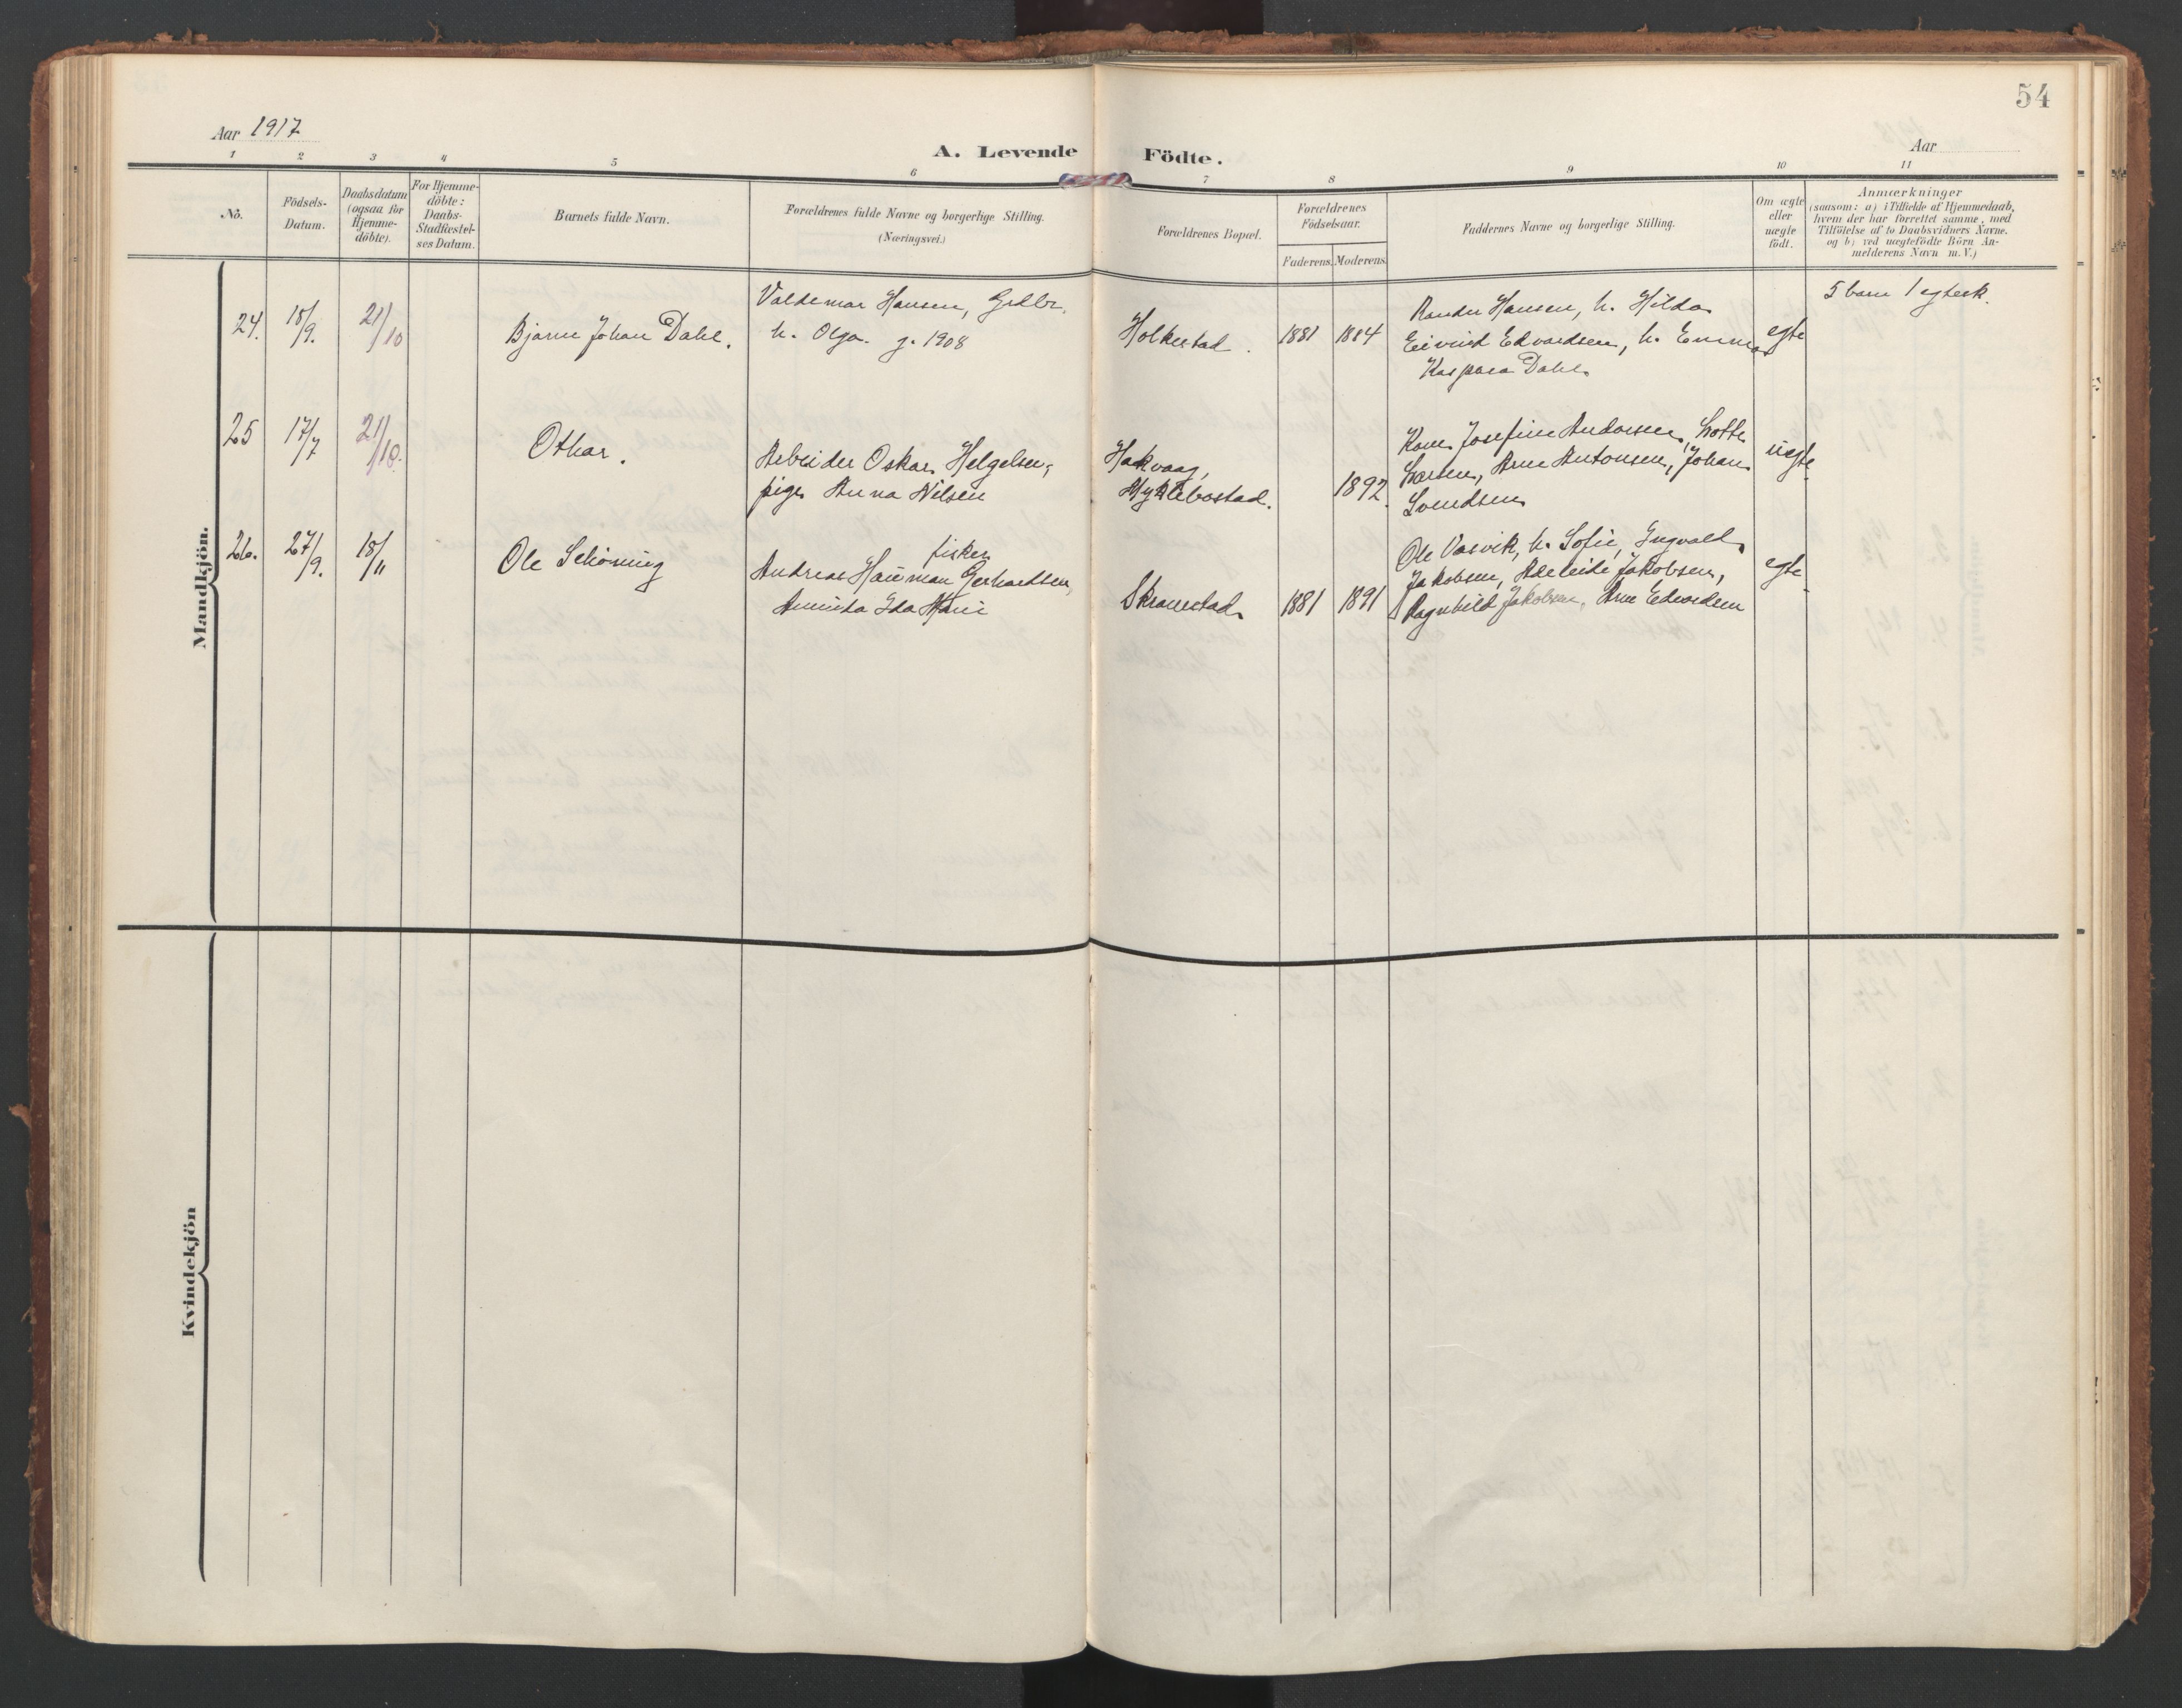 54
Aar 1917
Aar
A. Levende Födte.
1 2 3 4 5 6 7 8 9 10 11
No.
Födsels-
Datum.
Daabsdatum
(ogsaa for
Hjemme-
döbte).
For Hjemme-
döbte:
Daabs-
Stadfæstel-
ses Datum.
Barnets fulde Navn.
Forældrenes fulde Navne og borgerlige Stilling.
(Næringsvei.)
Forældrenes Bopæl.
Forældrenes
Födselsaar.
Faderens. Moderens.
Faddernes Navne og borgerlige Stilling.
Om ægte
eller
uægte
födt.
Anmærkninger
(saasom: a) i Tilfælde af Hjemmedaab,
hvem der har forrettet samme, med
Tilföielse af to Daabsvidners Navne.
og b) ved uægtefödte Börn An-
melderens Navn m. V.)
Mandkjön.
24. 18/9. 21/10 Bjarne Johan Dahl.
Valdemar Hansen, Grdbr.
h. Olga. g. 1908
Holkestad. 1881 1884
Hansen, h. Hilda
Eivind Edvardsen, h. Emma
Kaspara Dahl.
egte
5 barn 1 egtesk.
25 17/7 21/10. Othar.
Arbeider Oskar Helgesen,
pige Anna Nilsen
Hakvaag,
Myklebostad. 1892.
Kone Josefine Andorsen, Lotte
Larsen, Arne Antonsen, Johan
Svendsen
uegte.
26. 27/9. 18/11 Ole Schöning
fisker
Andreas Hauman Gerhardtsen,
Aminda Ida Marie
Skranstad 1881 1891
Ole Vasvik, h. Sofie, Ingvald
Jakobsen, Adeleide Jakobsen,
Ragnhild Jakobsen, Arne Edvardsen
egte.
Kvindekjön